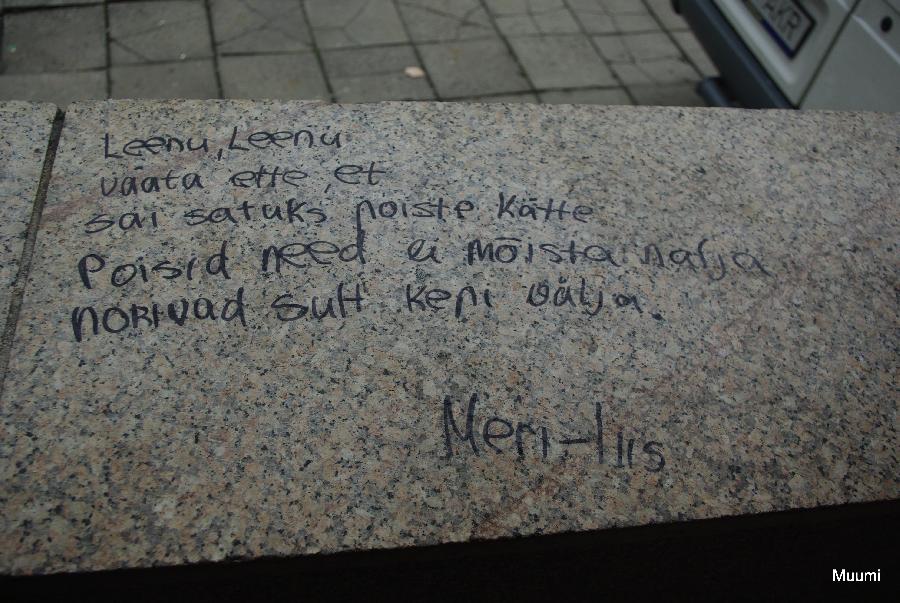 AKR
Leenu, Leenu
vaata ette, et
sai satuks poiste kätte
Poisid need ei mõista nalja
norivad sult keni välja.
Meri-liis
Muumi